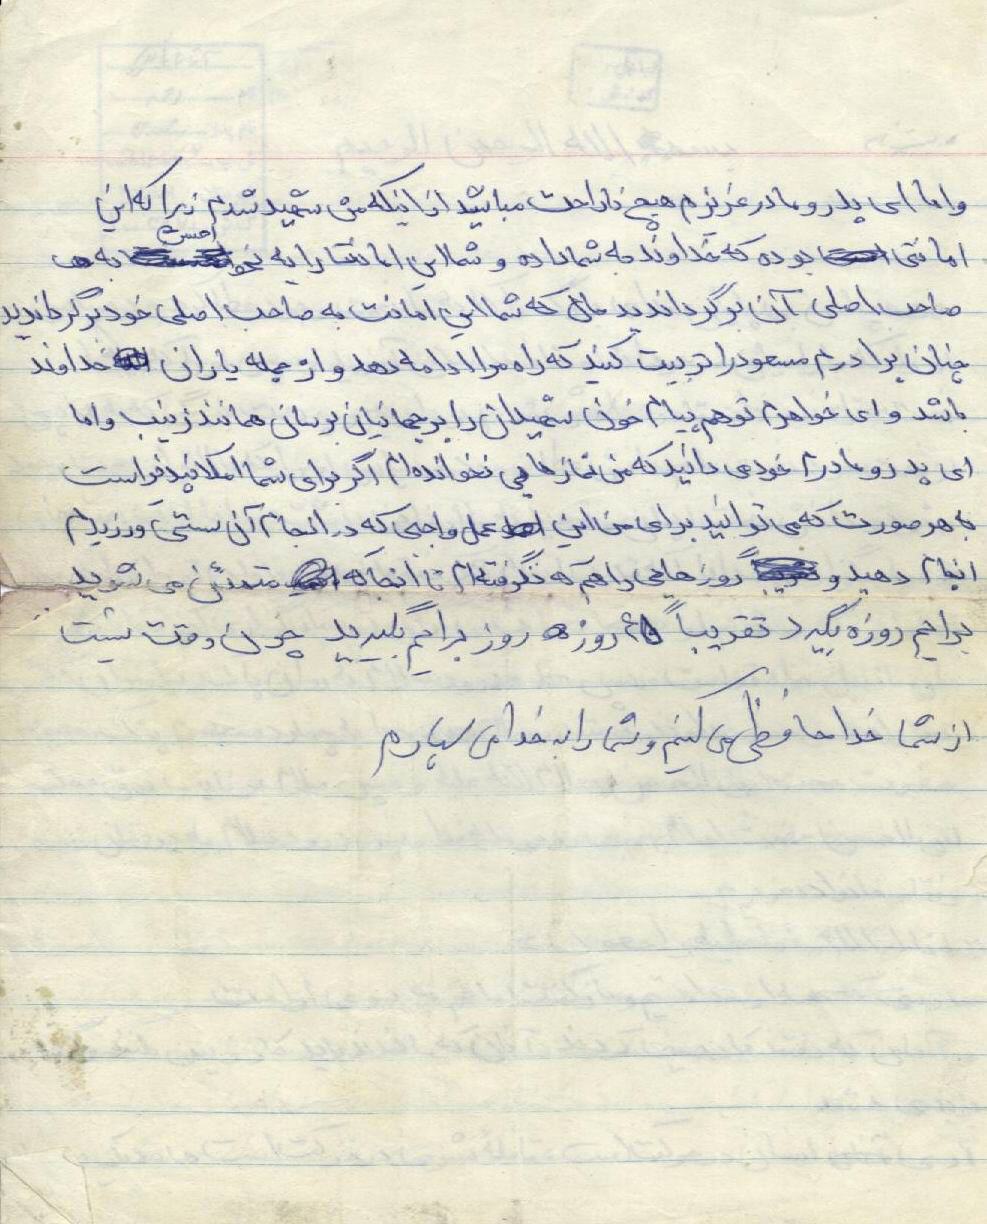 و اما ای پدر و مادر عزیزم هیچ ناراحت مباشید از اینکه من شهید شدم زیرا که این
امانتی بوده که خداوند به شما داده و شما این امانت را به نحو احسن به
صاحب اصلی آن برگرداندید حال که شما این امانت به صاحب اصلی خود برگرداندید
چنان برادرم مسعود را تربیت کنید که راه مرا ادامه دهد و از جمله یاران خداوند
باشد و ای خواهرم تو هم پیام خون شهیدان را بر جهانیان برسان همانند زینب و اما
ای پدر و مادرم خود می دانید که من نمازهایی نخوانده ام اگر برای شما
به هر صورت که می توانید برای من این عمل واجبی که در انجام آن سستی ورزیدم
انجام دهید و روزهایی را هم که نگرفته ام تا آنجا که متمکن می شوید
برایم روزه بگیرد تقریباً روزه روز برایم بگیرید چون وقت نیست
از شما خداحافظی می کنیم و شما را به خدا می سپارم